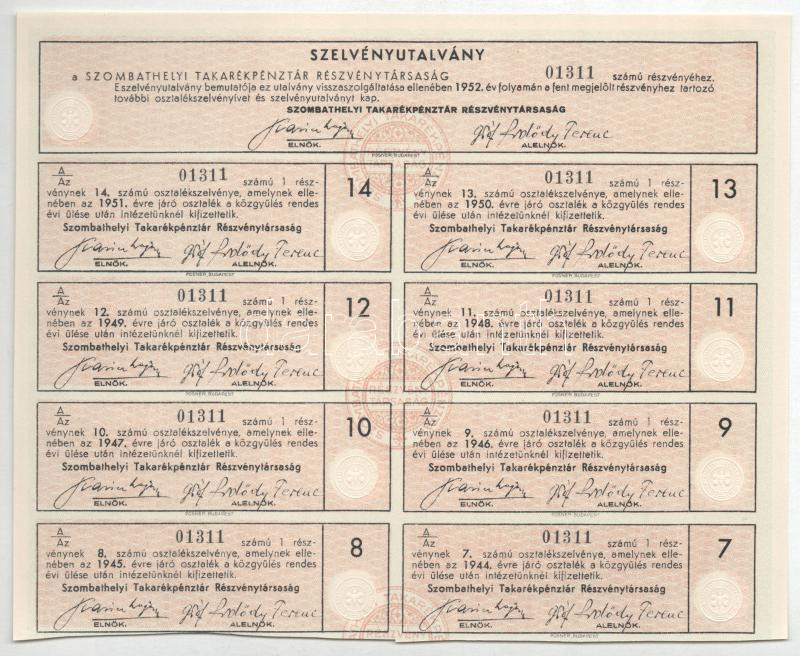 SZELVÉNYUTALVÁNY
a SZOMBATHELYI TAKARÉKPÉNZTÁR RÉSZVÉNYTÁRSASÁG 01311 számú részvényéhez.
E szelvényutalvány bemutatója ez utalvány visszaszolgáltatása ellenében 1952. év folyamán a fent megjelölt részvényhez tartozó
további osztalékszelvényívet és szelvényutalványt kap.
SZOMBATHELYI TAKARÉKPÉNZTÁR RÉSZVÉNYTÁRSASÁG
ELNÖK. ALELNÖK.
POSNER, BUDAPEST
A/Az 01311 számú 1 rész-
vénynek 14. számú osztalékszelvénye, amelynek elle-
nében az 1951. évre járó osztalék a közgyűlés rendes
évi ülése után intézetünknél kifizettetik.
Szombathelyi Takarékpénztár Részvénytársaság
ELNÖK. ALELNÖK.
14
POSNER, BUDAPEST
A/Az 01311 számú 1 rész-
vénynek 13. számú osztalékszelvénye, amelynek elle-
nében az 1950. évre járó osztalék a közgyűlés rendes
évi ülése után intézetünknél kifizettetik.
Szombathelyi Takarékpénztár Részvénytársaság
ELNÖK. ALELNÖK.
13
POSNER, BUDAPEST
A/Az 01311 számú 1 rész-
vénynek 12. számú osztalékszelvénye, amelynek elle-
nében az 1949. évre járó osztalék a közgyűlés rendes
évi ülése után intézetünknél kifizettetik.
Szombathelyi Takarékpénztár Részvénytársaság
ELNÖK. ALELNÖK.
12
POSNER, BUDAPEST
A/Az 01311 számú 1 rész-
vénynek 11. számú osztalékszelvénye, amelynek elle-
nében az 1948. évre járó osztalék a közgyűlés rendes
évi ülése után intézetünknél kifizettetik.
Szombathelyi Takarékpénztár Részvénytársaság
ELNÖK. ALELNÖK.
11
POSNER, BUDAPEST
A/Az 01311 számú 1 rész-
vénynek 10. számú osztalékszelvénye, amelynek elle-
nében az 1947. évre járó osztalék a közgyűlés rendes
évi ülése után intézetünknél kifizettetik.
Szombathelyi Takarékpénztár Részvénytársaság
ELNÖK. ALELNÖK.
10
POSNER, BUDAPEST
A/Az 01311 számú 1 rész-
vénynek 9. számú osztalékszelvénye, amelynek elle-
nében az 1946. évre járó osztalék a közgyűlés rendes
évi ülése után intézetünknél kifizettetik.
Szombathelyi Takarékpénztár Részvénytársaság
ELNÖK. ALELNÖK.
9
POSNER, BUDAPEST
A/Az 01311 számú 1 rész-
vénynek 8. számú osztalékszelvénye, amelynek elle-
nében az 1945. évre járó osztalék a közgyűlés rendes
évi ülése után intézetünknél kifizettetik.
Szombathelyi Takarékpénztár Részvénytársaság
ELNÖK. ALELNÖK.
8
A/Az 01311 számú 1 rész-
vénynek 7. számú osztalékszelvénye, amelynek elle-
nében az 1944. évre járó osztalék a közgyűlés rendes
évi ülése után intézetünknél kifizettetik.
Szombathelyi Takarékpénztár Részvénytársaság
ELNÖK. ALELNÖK.
7
POSNER, BUDAPEST